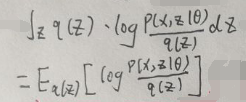 ∫_z q(z) · log P(x,z|θ)/q(z) dz
= E_q(z) [ log P(x,z|θ)/q(z) ]